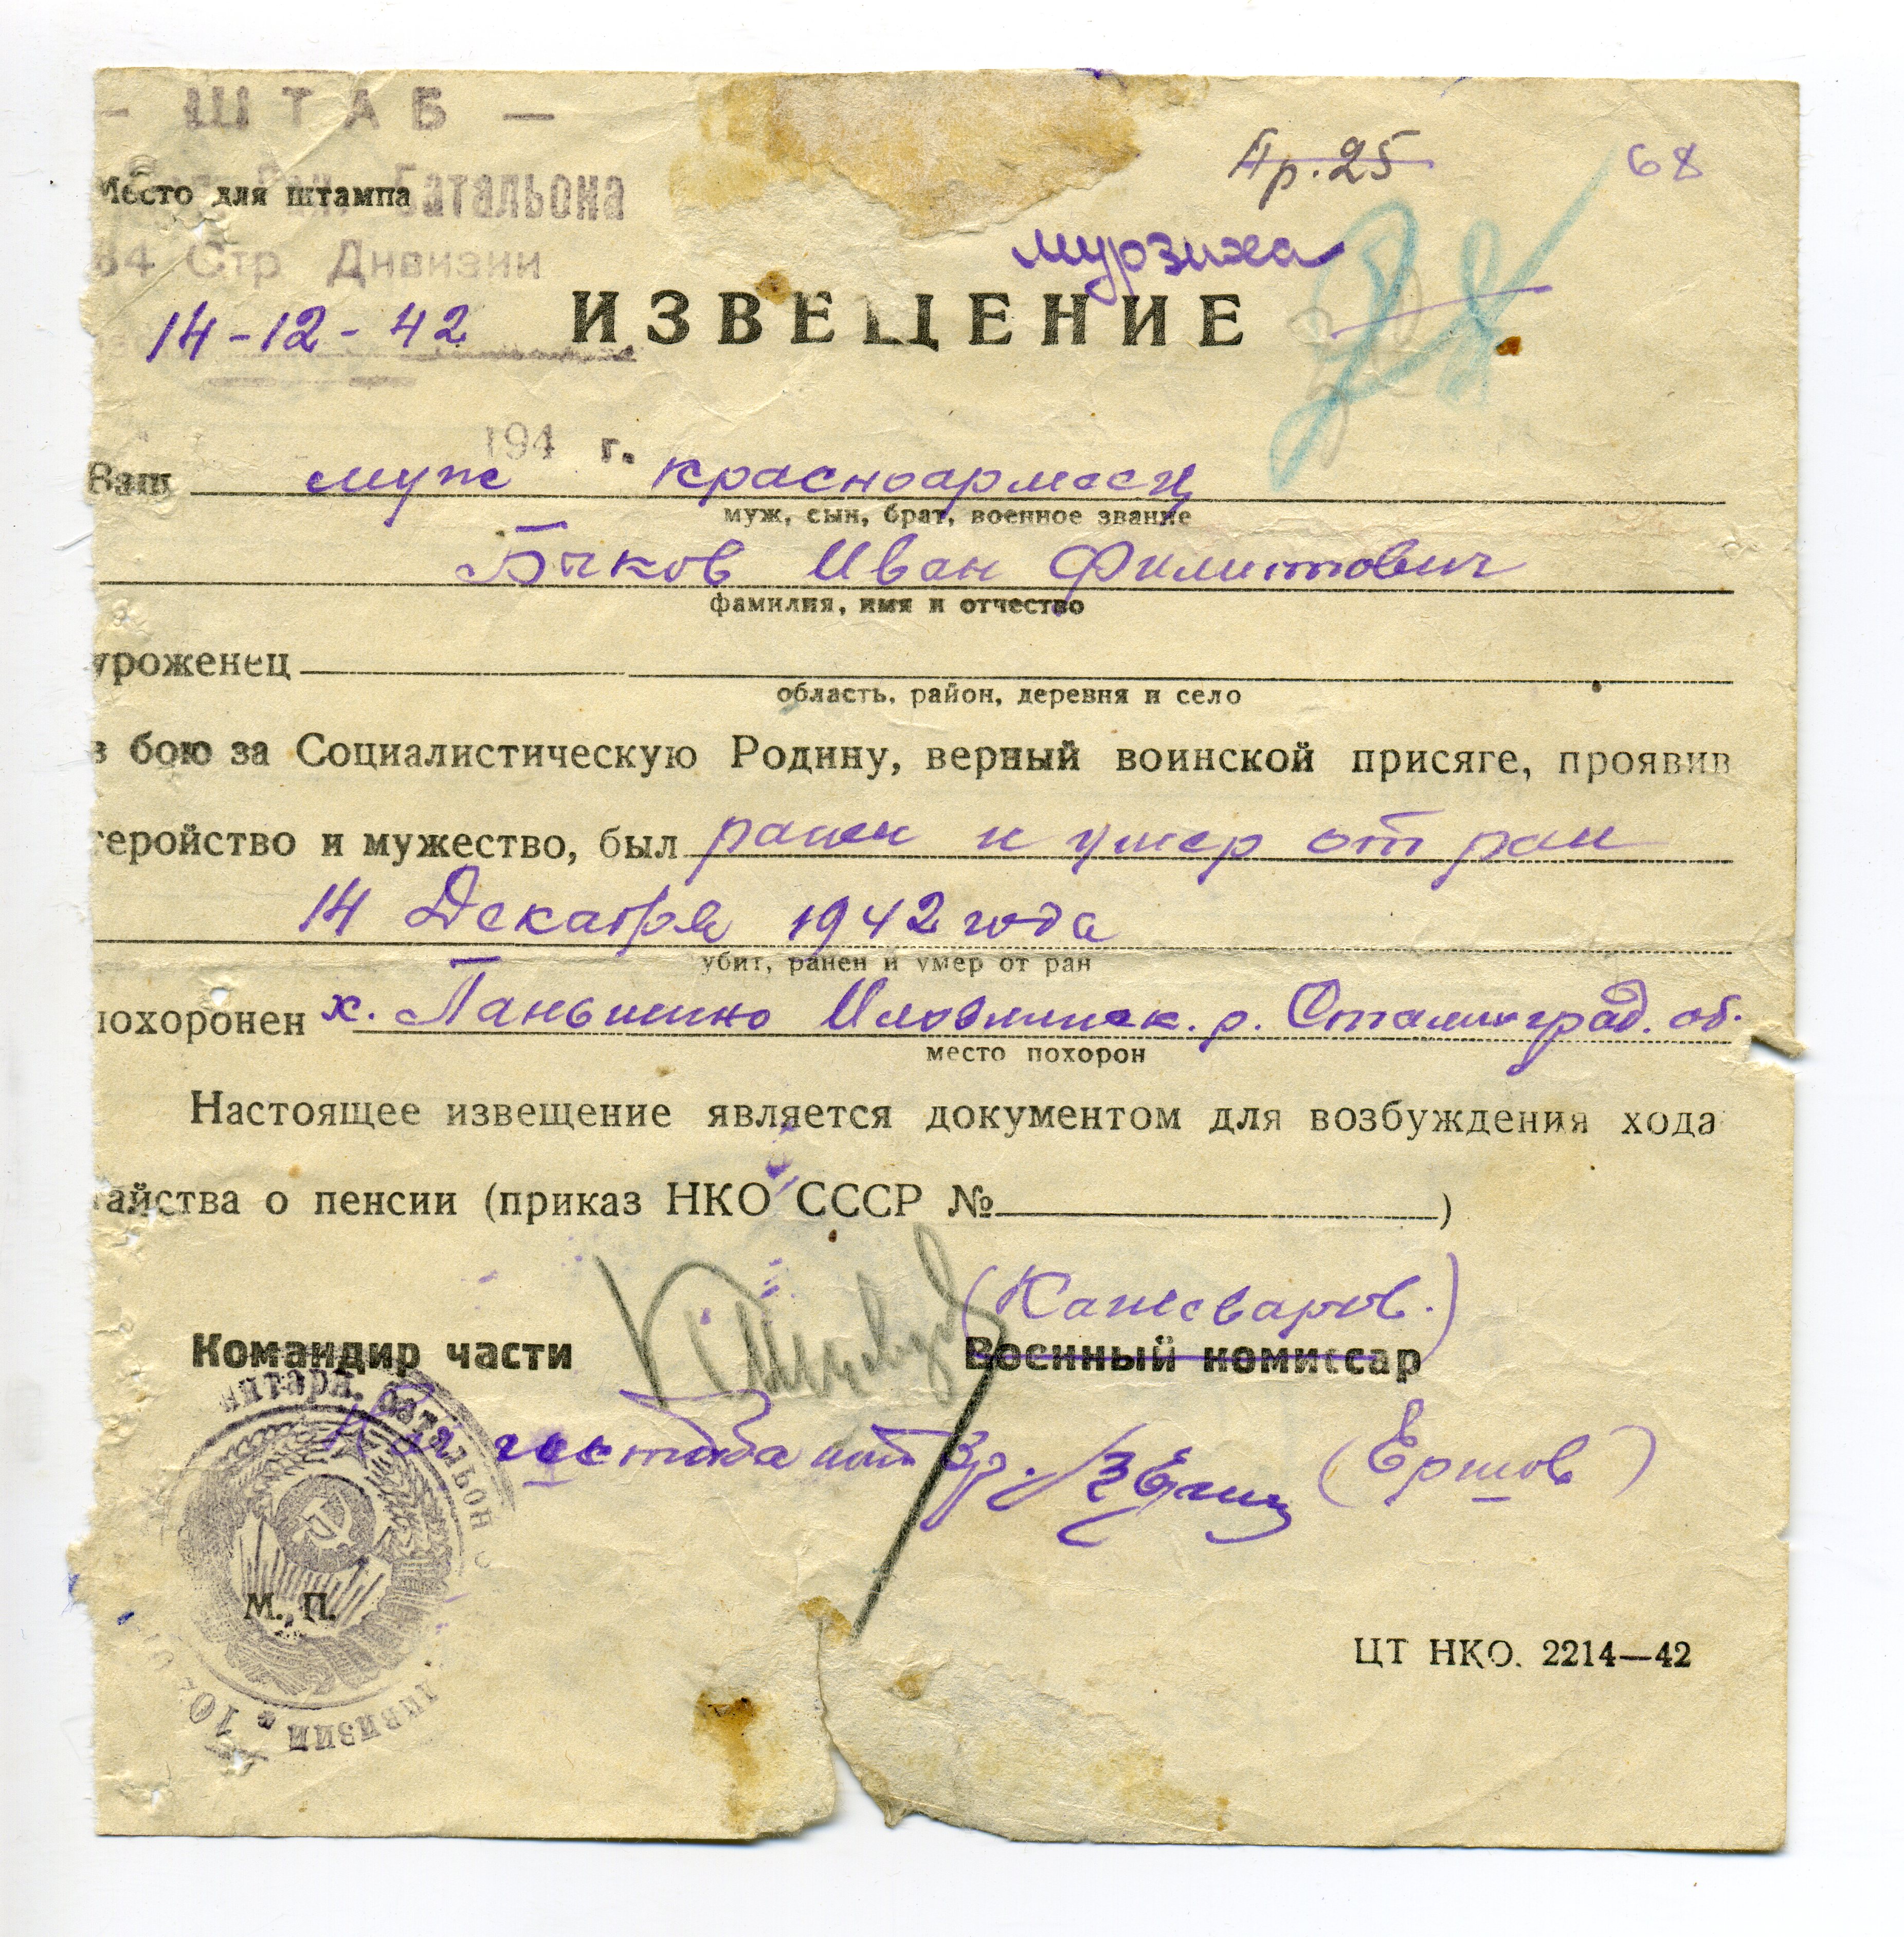 — ШТАБ —
Место для штампа
Сан. Батальона
84 Стр Дивизии
Ар. 25
68
Мурзиха
14-12-42
ИЗВЕЩЕНИЕ
194 г.
Ваш муж красноармеец
муж, сын, брат, военное звание
Быков Иван Филиппович
фамилия, имя и отчество
уроженец
область, район, деревня и село
в бою за Социалистическую Родину, верный воинской присяге, проявив
геройство и мужество, был ранен и умер от ран
14 Декабря 1942 года
убит, ранен и умер от ран
похоронен х. Паньшино Иловлинск. р. Сталинград. об.
место похорон
Настоящее извещение является документом для возбуждения хода
тайства о пенсии (приказ НКО СССР №)
Командир части
Военный комиссар
(Ершов)
санитарн. батальон
дивизии * 10
М. П.
ЦТ НКО. 2214—42